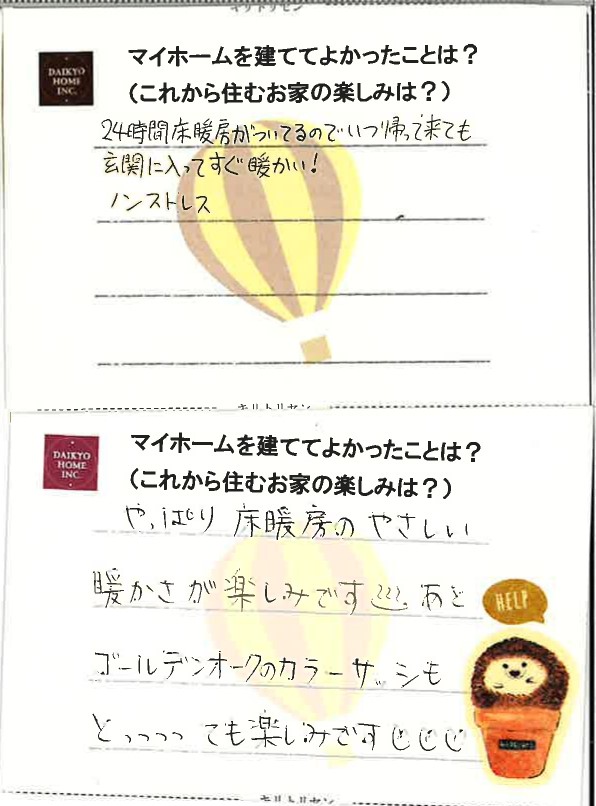 キリトリセン
DAIKYO
HOME
INC.
マイホームを建ててよかったことは？
（これから住むお家の楽しみは？）
24時間床暖房がついてるのでいつ帰って来ても
玄関に入ってすぐ暖かい！
ノンストレス
キリトリセン
DAIKYO
HOME
INC.
マイホームを建ててよかったことは？
（これから住むお家の楽しみは？）
やっぱり 床暖房の やさしい
暖かさが楽しみです あと
HELP
ゴールデンオークのカラーサッシも
とっっっっ ても楽しみです
キリトリセン